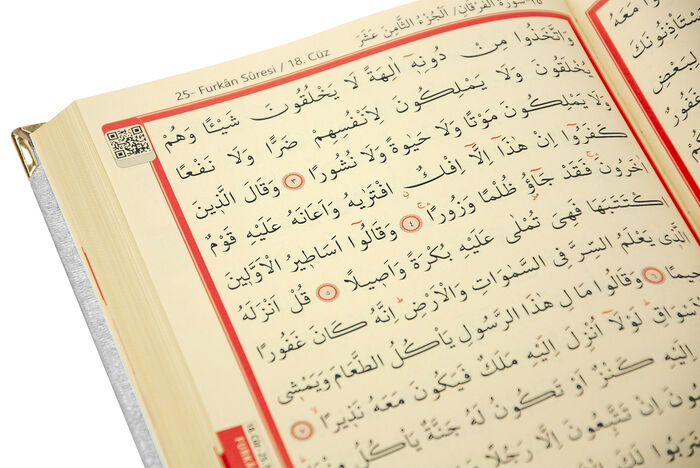 25- Furkân Sûresi / 18. Cüz
سورة الفرقان / الجزء الثامن عشر
وَاتَّخَذُوا مِنْ دُونِهٖٓ اٰلِهَةً لَا يَخْلُقُونَ شَيْـًٔا وَهُمْ
يُخْلَقُونَ وَلَا يَمْلِكُونَ لِاَنْفُسِهِمْ ضَرًّا وَلَا نَفْعًا
وَلَا يَمْلِكُونَ مَوْتًا وَلَا حَيٰوةً وَلَا نُشُورًا ٣ وَقَالَ الَّذٖينَ
كَفَرُٓوا اِنْ هٰذَٓا اِلَّٓا اِفْكٌ افْتَرٰيهُ وَاَعَانَهُ عَلَيْهِ قَوْمٌ
اٰخَرُونَ فَقَدْ جَٓاؤُ ظُلْمًا وَزُورًا ٤ وَقَالُٓوا اَسَاطٖيرُ الْاَوَّلٖينَ
اكْتَتَبَهَا فَهِيَ تُمْلٰى عَلَيْهِ بُكْرَةً وَاَصٖيلًا ٥ قُلْ اَنْزَلَهُ
الَّذٖي يَعْلَمُ السِّرَّ فِي السَّمٰوَاتِ وَالْاَرْضِ اِنَّهُ كَانَ غَفُورًا
٦ وَقَالُوا مَالِ هٰذَا الرَّسُولِ يَأْكُلُ الطَّعَامَ وَيَمْشٖي
لَوْلَٓا اُنْزِلَ اِلَيْهِ مَلَكٌ فَيَكُونَ مَعَهُ نَذٖيرًا ٧
اِلَيْهِ كَنْزٌ اَوْ تَكُونُ لَهُ جَنَّةٌ يَأْكُلُ
اِنْ تَتَّبِعُونَ اِلَّا رَجُلًا
مَعَهُ